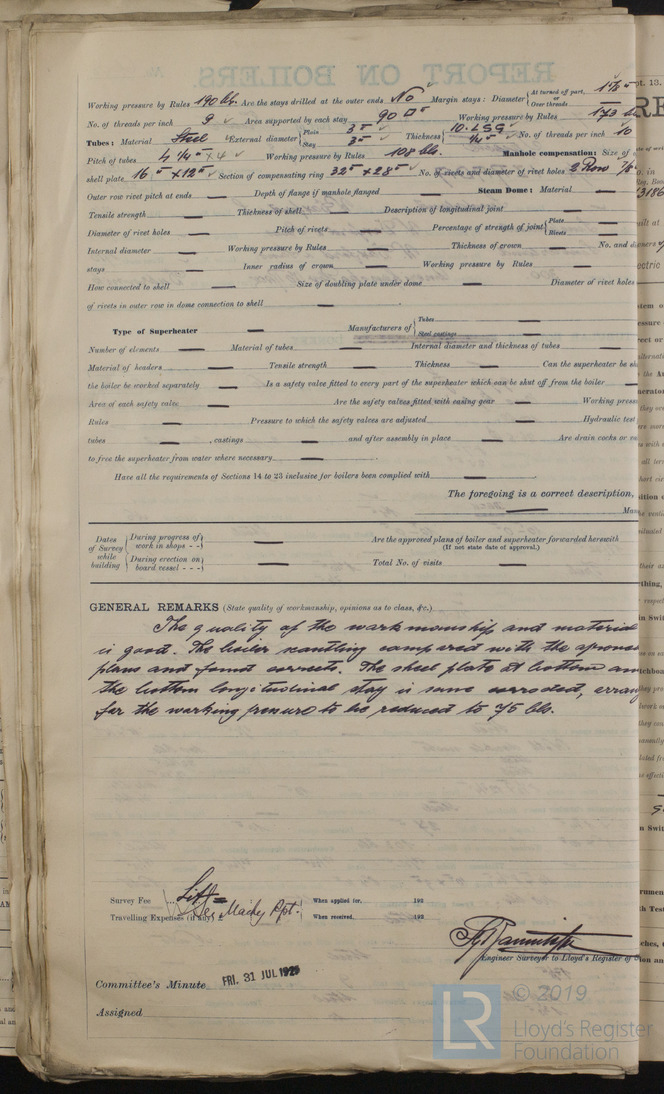 REPORT ON BOILERS.
Working pressure by Rules 190 lb. Are the stays drilled at the outer ends No Margin stays: Diameter { At turned off part, or Over threads
No. of threads per inch 9 Area supported by each stay 90 □" Working pressure by Rules 173
Tubes: Material Steel External diameter { Plain 3" Stay 3" Thickness { 10. L.S.G. 1/4" No. of threads per inch 10
Pitch of tubes 4 1/4" x 4 Working pressure by Rules 108 lbs. Manhole compensation: Size of
shell plate 16" x 12" Section of compensating ring 32" x 28" No. of rivets and diameter of rivet holes 2 Row 7/8
Outer row rivet pitch at ends — Depth of flange if manhole flanged — Steam Dome: Material —
Tensile strength — Thickness of shell — Description of longitudinal joint —
Diameter of rivet holes — Pitch of rivets — Percentage of strength of joint { Plate — Rivets —
Internal diameter — Working pressure by Rules — Thickness of crown — No. and
stays — Inner radius of crown — Working pressure by Rules —
How connected to shell — Size of doubling plate under dome — Diameter of rivet holes
of rivets in outer row in dome connection to shell —
Type of Superheater — Manufacturers of { Tubes — Steel castings —
Number of elements — Material of tubes — Internal diameter and thickness of tubes —
Material of headers — Tensile strength — Thickness — Can the superheater be
the boiler be worked separately — Is a safety valve fitted to every part of the superheater which can be shut off from the boiler —
Area of each safety valve — Are the safety valves fitted with easing gear — Working
Rules — Pressure to which the safety valves are adjusted — Hydraulic test
tubes — , castings — and after assembly in place — Are drain cocks or
to free the superheater from water where necessary —
Have all the requirements of Sections 14 to 23 inclusive for boilers been complied with —
The foregoing is a correct description,
—
Dates of Survey while building { During progress of work in shops - - — During erection on board vessel - - - —
Are the approved plans of boiler and superheater forwarded herewith
(If not state date of approval.)
Total No. of visits —
GENERAL REMARKS (State quality of workmanship, opinions as to class, &c.)
The quality of the workmanship and material
is good. The boiler scantling compared with the
plans and found correct. The shell plate at bottom
the bottom longitudinal stay is some corroded,
for the working presure to be reduced to 75 lbs.
Survey Fee When applied for, 192
Travelling Expenses (if any) See Machy Rpt. When received, 192
Engineer Surveyor to Lloyd's Register of
Committee's Minute FRI. 31 JUL 1925
Assigned
© 2019
LR Lloyd's Register
Foundation